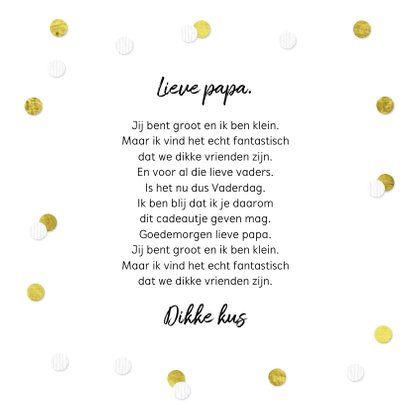 Lieve papa.
Jij bent groot en ik ben klein.
Maar ik vind het echt fantastisch
dat we dikke vrienden zijn.
En voor al die lieve vaders.
Is het nu dus Vaderdag.
Ik ben blij dat ik je daarom
dit cadeautje geven mag.
Goedemorgen lieve papa.
Jij bent groot en ik ben klein.
Maar ik vind het echt fantastisch
dat we dikke vrienden zijn.
Dikke kus